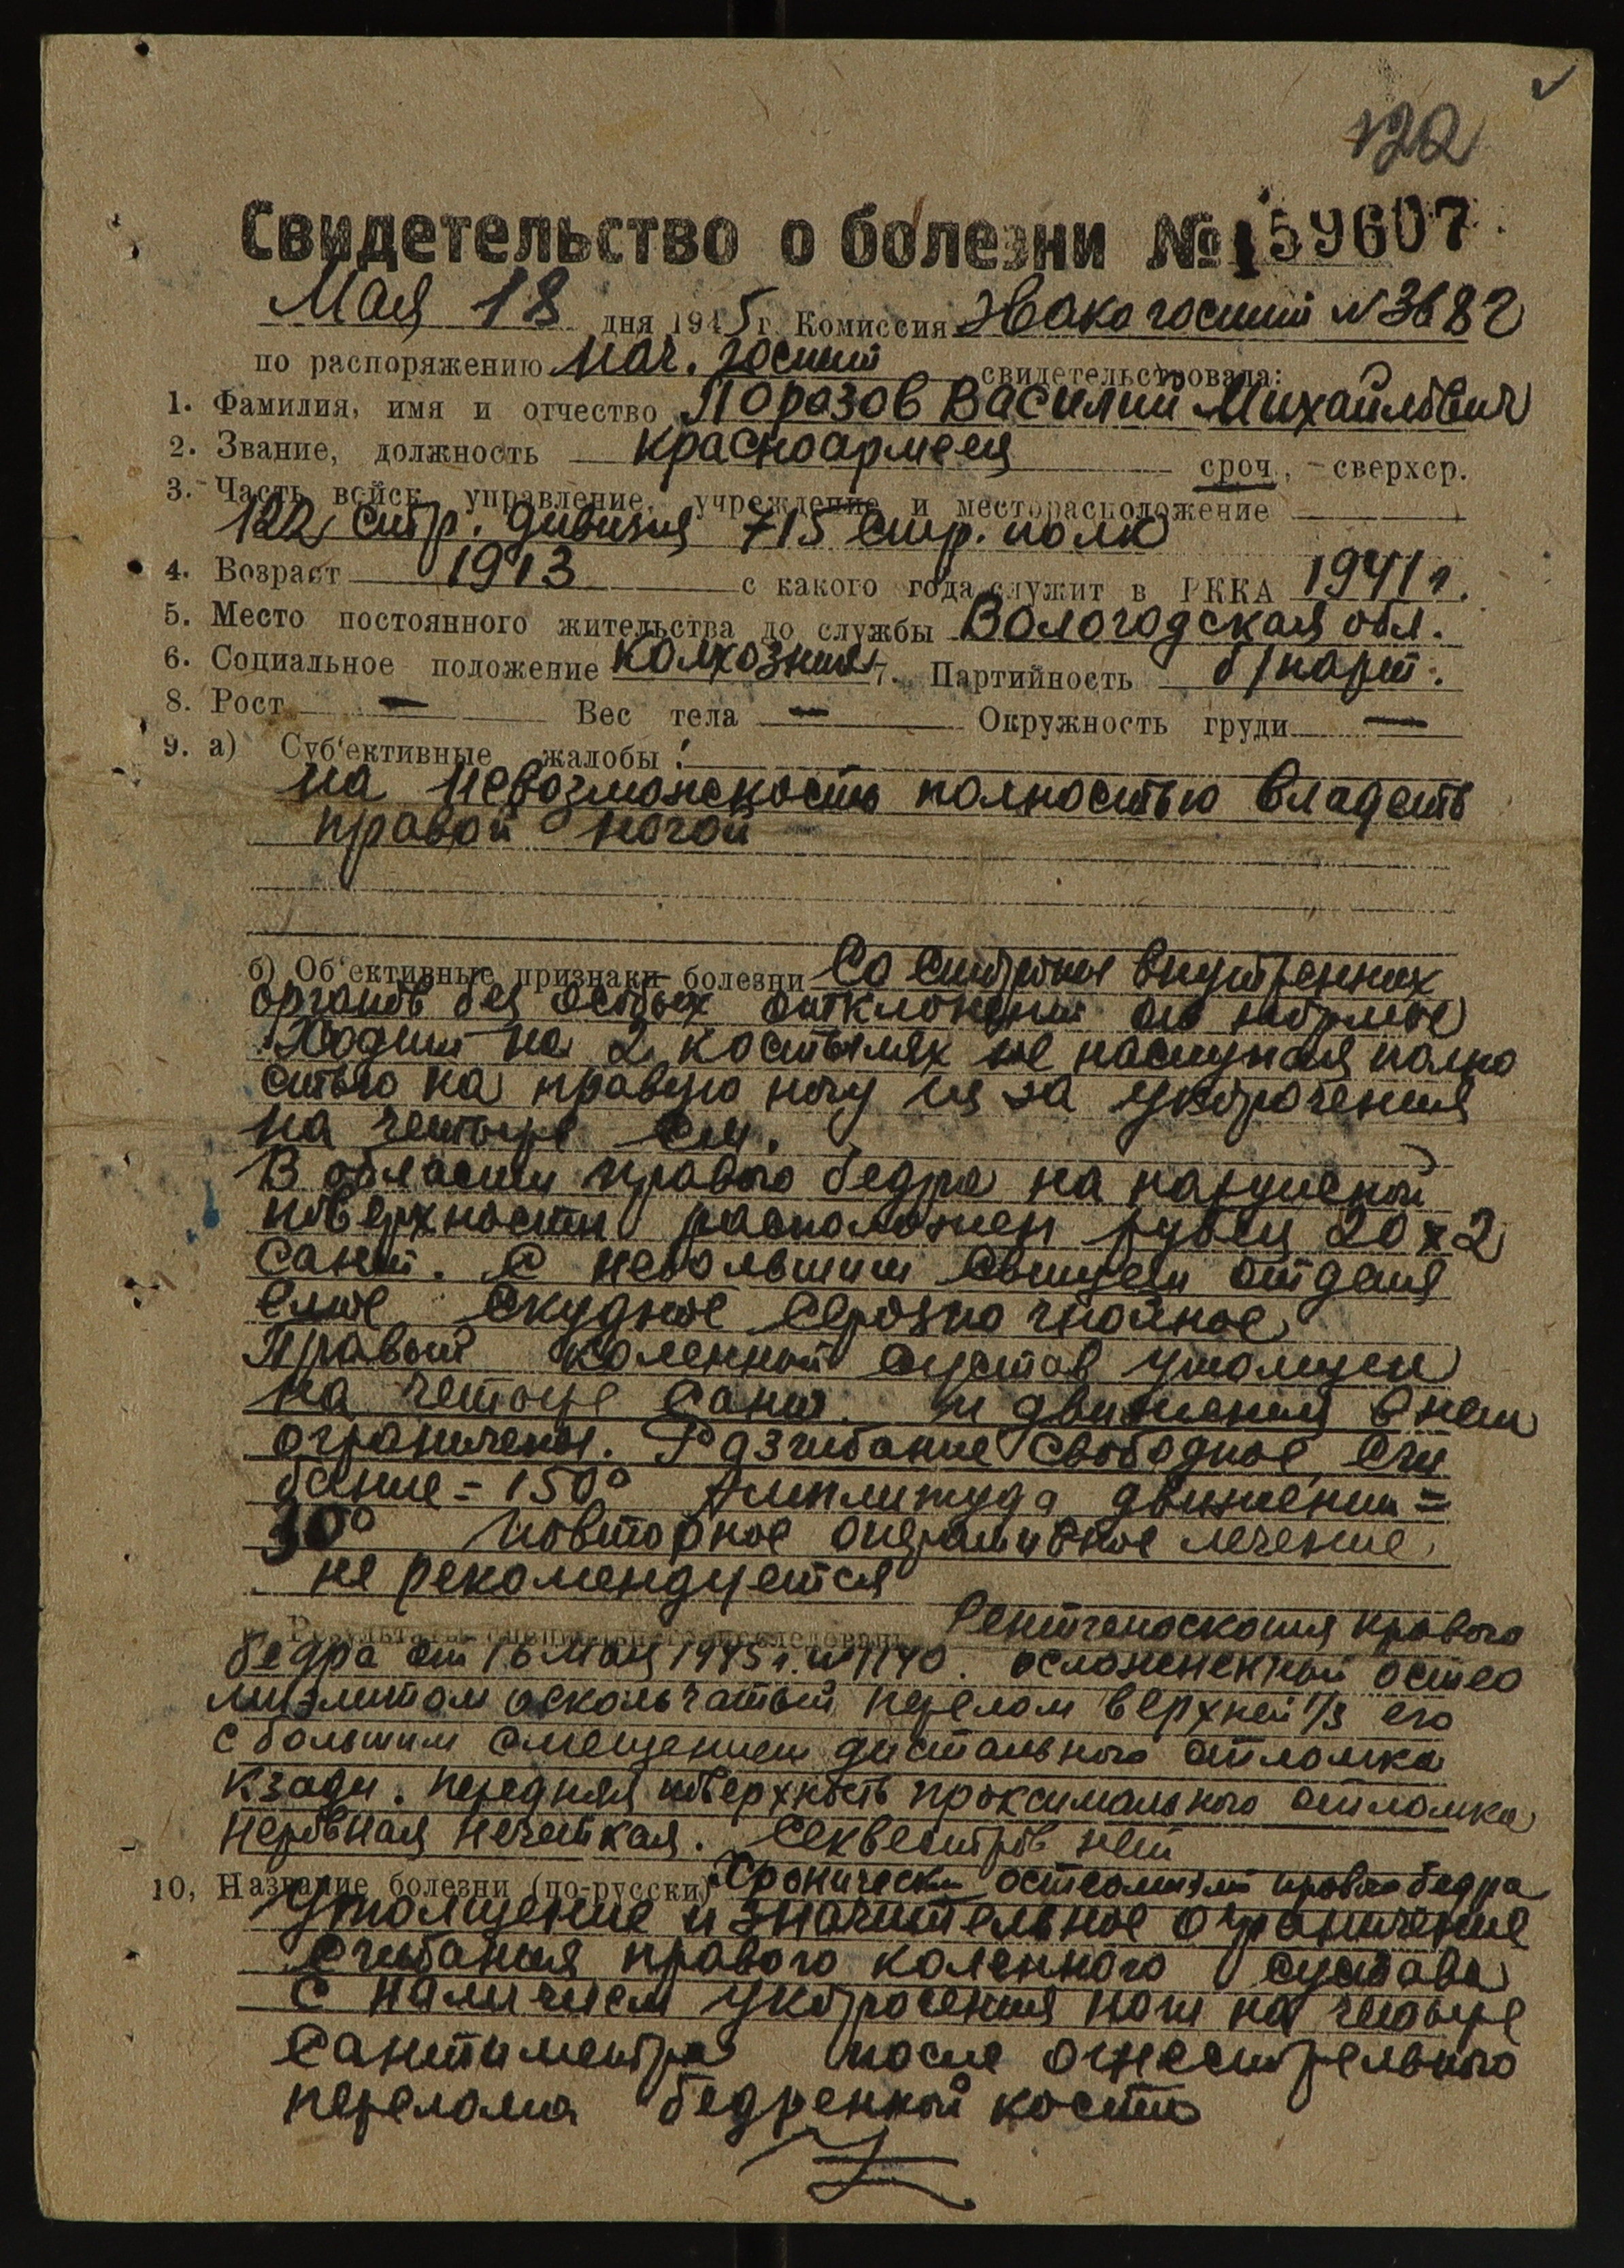 122
Свидетельство о болезни № 159607
Мая 18 дня 1945 г. Комиссия Эвакогоспит N 3682
по распоряжению Нач. госпит свидетельствовала:
1. Фамилия, имя и отчество Поразов Василий Михайлович
2. Звание, должность красноармеец сроч., сверхср.
3. Часть войск, управление, учреждение и месторасположение
122 стр. дивизия 715 стр. полк
4. Возраст 1913 с какого года служит в РККА 1941 г.
5. Место постоянного жительства до службы Вологодская обл.
6. Социальное положение колхозник 7. Партийность б/парт.
8. Рост — Вес тела — Окружность груди —
9. а) Суб'ективные жалобы:
на невозможность полностью владеть
правой ногой
б) Об'ективные признаки болезни Со стороны внутренних
органов без особых отклонений от нормы
Ходит на 2 костылях не наступая полно
стью на правую ногу из за укорочения
на четыре см.
В области правого бедра на наружной
поверхности расположен рубец 20 х 2
сант. с небольшим свищем отделя
емое скудное серозно гнойное
Правый коленный сустав утолщен
на четыре сант. и движения в нем
ограничены. Разгибание свободное, сги
бание = 150° Амплитуда движений =
30° Повторное оперативное лечение
не рекомендуется
в) Результаты специального исследовани Рентгеноскопия правого
бедра от 16 мая 1945 г. N 1140. осложненный остео
миэлитом оскольчатый перелом верхней 1/3 его
с большим смещением дистального отломка
кзади. передняя поверхность проксимального отломка
неровная нечеткая. Секвестров нет
10, Название болезни (по-русски) Хронически остеомиэлит правого бедра
Утолщение и значительное ограничение
сгибания правого коленного сустава
с наличием укорочения ноги на четыре
сантиментра после огнестрельного
перелома бедренной кости